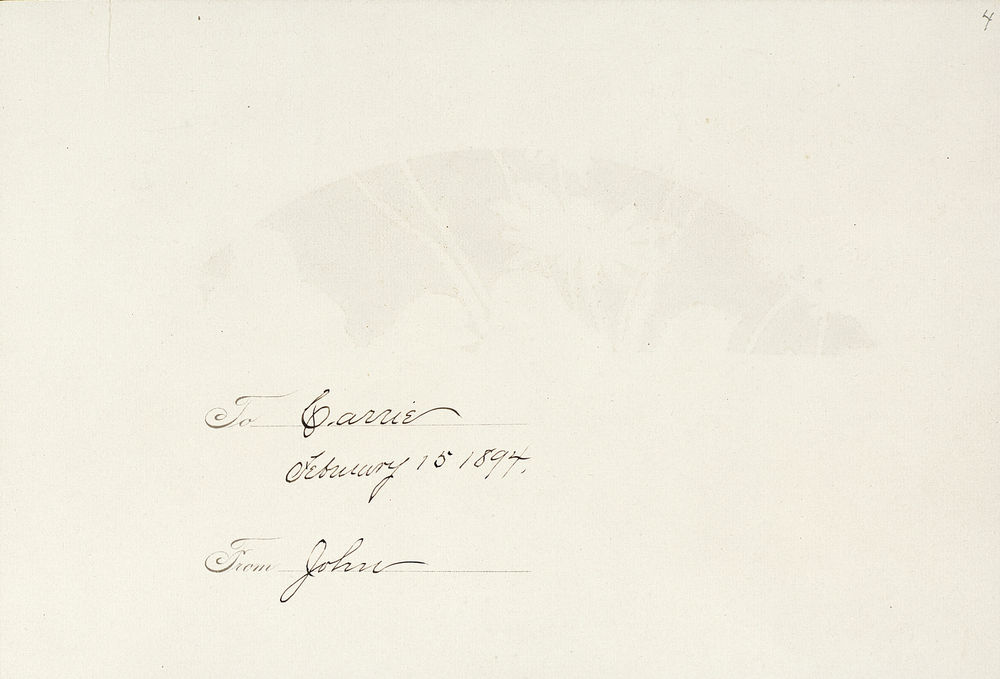 4
To Carrie
February 15 1894.
From John